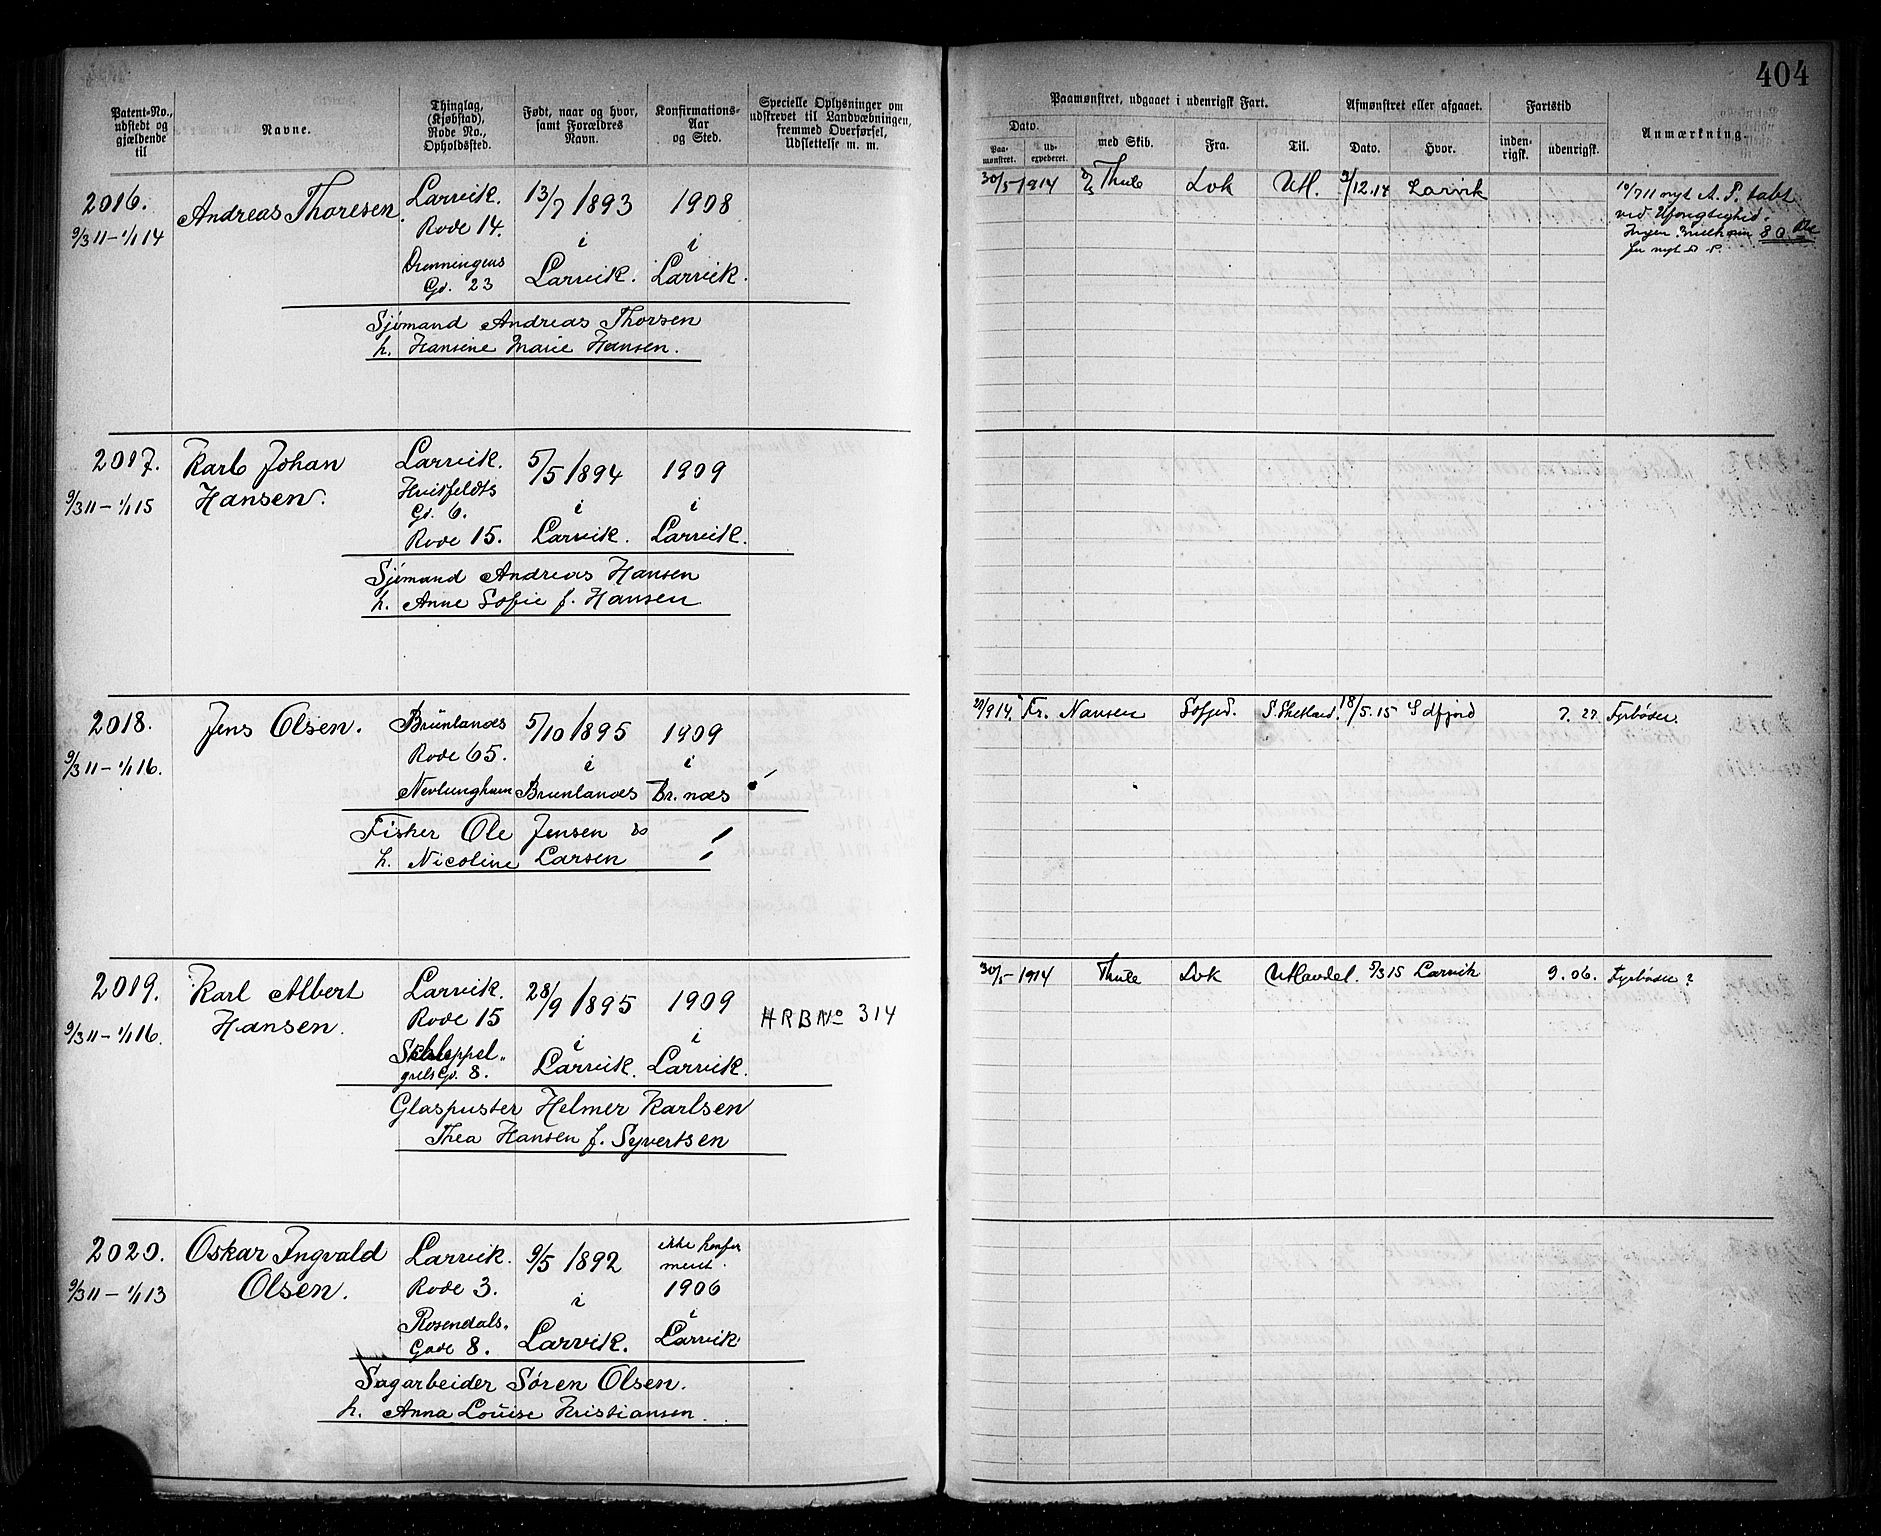 404
Patent-No., udstedt og gjældende til
Navne.
Thinglag, (Kjøbstad), Rode No., Opholdssted.
Født, naar og hvor, samt Forældres Navn.
Konfirmations-Aar og Sted.
Specielle Oplysninger om udskrevet til Landvæbningen, fremmed Overførsel, Udslettelse m. m.
Paamønstret, udgaaet i udenrigsk Fart.
Dato.
Paa-mønstret.
Ud-expederet.
med Skib.
Fra.
Til.
Afmønstret eller afgaaet.
Dato.
Hvor.
Fartstid
inden-rigsk.
udenrigsk.
Anmærkning.
2016.
9/3 11 – 1/1 14
Andreas Thoresen
Larvik.
Rode 14.
Dronningens
Gd. 23
13/7 1893
i
Larvik.
1908
i
Larvik.
Sjømand Andreas Thorsen
h. Hansine Marie Hansen.
30/5 1914
Thule
Lvk
Utl.
9/12.14
Larvik
10/7 11 nyt A. P. tabt
ved Uforsigtighed.
80
2017.
9/3 11 – 1/1 15
Karl Johan
Hansen.
Larvik.
Hvitfeldts
Gd. 6.
Rode 15.
5/5 1894
i
Larvik.
1909
i
Larvik.
Sjømand Andreas Hansen
h. Anne Sofie f. Hansen
2018.
9/3 11 – 1/1 16.
Jens Olsen.
Brunlanæs
Rode 65.
Nevlunghavn
5/10 1895
i
Brunlanæs
1909
i
Br.næs
Fisker Ole Jensen
h. Nicoline Larsen
/9 14.
Fr. Nansen
S.Shetland.
18/5.15
7. 27.
Fyrbøder.
2019.
9/3 11 – 1/1 16.
Karl Albert
Hansen.
Larvik.
Rode 15
grels Gd. 8.
28/9 1895
i
Larvik.
1909
i
Larvik.
HRB No 314
Glaspuster Helmer Karlsen
Thea Hansen f. Syvertsen
30/5 - 1914
Thule
Lvk
Utlandet.
5/3 15
Larvik
9. 06.
Fyrbøder
2020.
9/3 11 – 1/1 13
Oskar Ingvald
Olsen.
Larvik.
Rode 3.
Rosendals.
Gade 8.
9/5 1892
i
Larvik.
ikke konfir
meret.
1906
i
Larvik
Sagarbeider Søren Olsen.
h. Anna Louise Kristiansen.